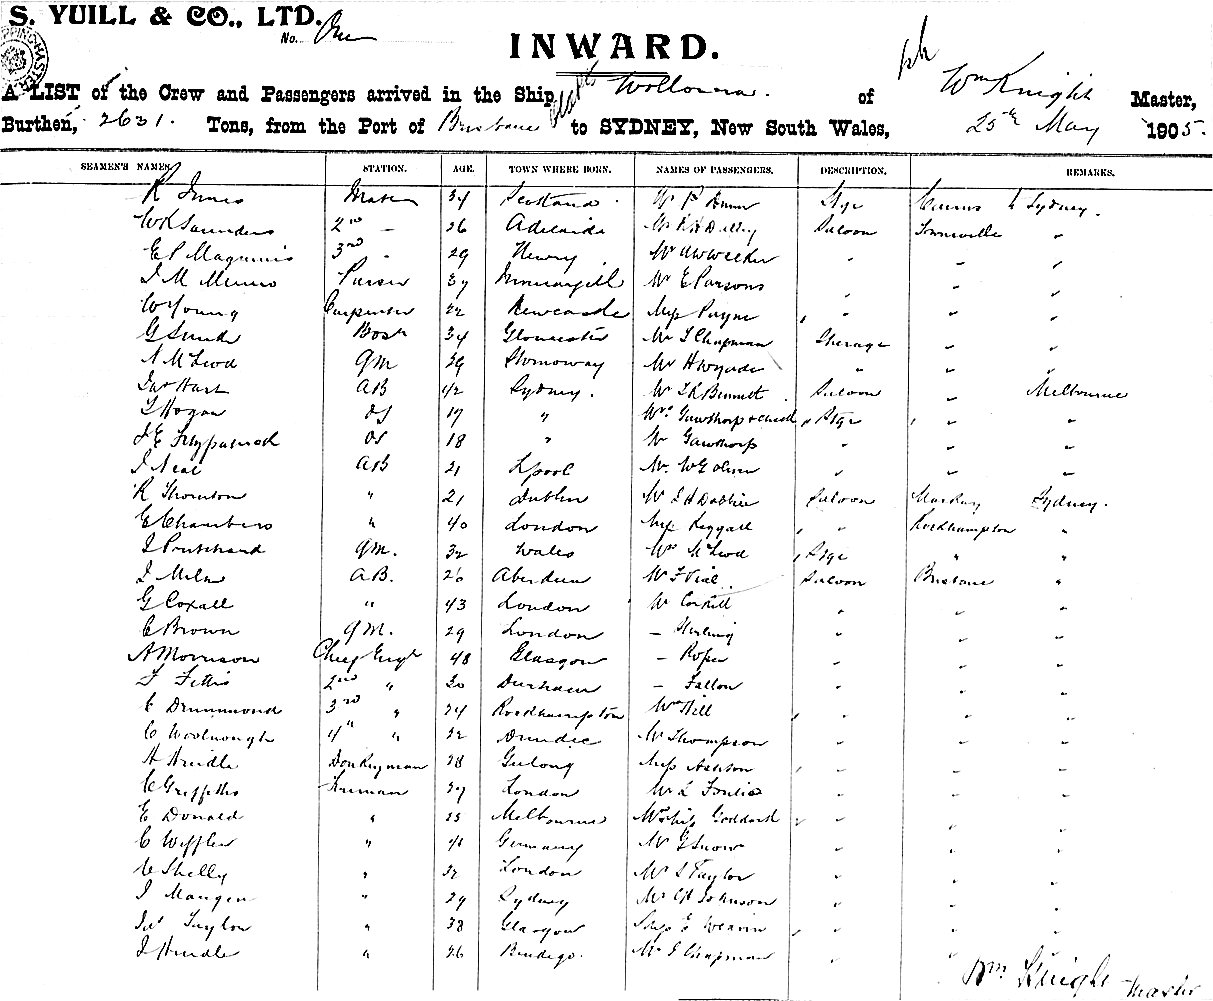 S. YUILL & CO., LTD.
No. One
SHIPPING MASTER
INWARD.
A LIST of the Crew and Passengers arrived in the Ship Wollowra. of Wm Knight Master,
Burthen, 2631. Tons, from the Port of Brisbane to SYDNEY, New South Wales, 25th May 1905.
SEAMEN'S NAMES. STATION. AGE. TOWN WHERE BORN. NAMES OF PASSENGERS. DESCRIPTION. REMARKS.
R Innes Mate 34 Scotland. Mr P Stge Cairns to Sydney.
W R Saunders 2nd - 26 Adelaide Mr Dilley Saloon Townsville "
E P Maguinis 3rd " 29 Newry Mr A W Weeker " " "
J M Munro Purser 37 Invercargill Mr E Parsons " " "
W Young Carpenter 22 Newcastle Miss Payne " " "
G Smith Bosn 34 Gloucester Mr T Chapman Steerage " "
N McLeod QM 39 Stornoway Mr H " " "
Jas Hart AB 42 Sydney. Mr Bennett Saloon " Melbourne
T Hogan OS 17 " Mrs Gawthorp & child Stge " "
J E Fitzpatrick OS 18 " Mr Gawthorp " " "
J Neal AB 21 Lpool Mr W G " " "
R Thornton " 21 Dublin Mr J H Dobbie Saloon Mackay Sydney.
E Chambers " 40 London Miss Heggall " Rockhampton "
J Pritchard QM. 32 Wales Mrs McLeod Stge " "
J Milne A.B. 26 Aberdeen Mr F Vial Saloon Brisbane "
G Coxall " 43 London Mr Corkill " " "
C Brown QM. 29 London - Sterling " " "
A Morrison Chief Engr 48 Glasgow - Roper " " "
F Fettis 2nd " 30 Durham - Fallon " " "
C Drummond 3rd " 24 Rockhampton Mrs Hill " " "
C Woolnough 4th " 22 Dundee Mr Thompson " " "
H Hindle Donkeyman 28 Geelong Miss Ashton " " "
C Griffiths Fireman 27 London Mr L " " "
E Donald " 25 Melbourne Goddard " " "
C Weffler " 41 Germany Mr G Snow " " "
V Shelly " 32 London Mr S Taylor " " "
J Mangin " 29 Sydney Mr C H Johnson " " "
Jas Taylor " 38 Glasgow Miss E Weavin " " "
J Hindle " 26 Bendigo. Mr E Chapman " " "
Wm Knight Master